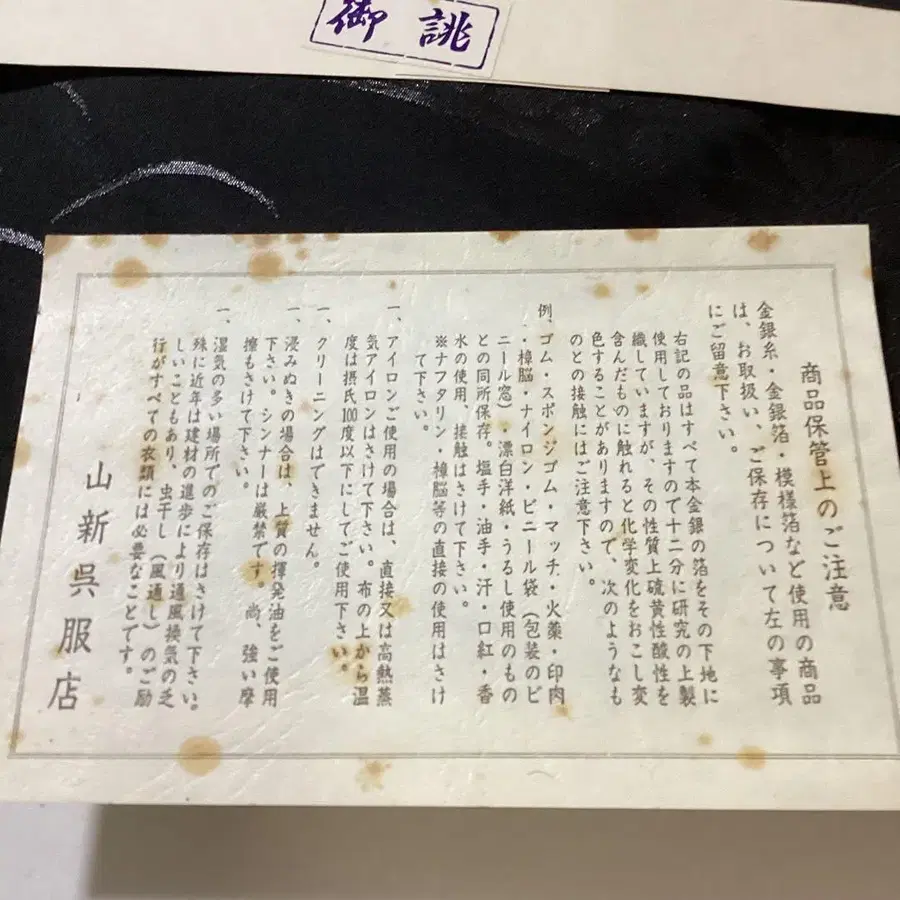 御誂
商品保管上のご注意
金銀糸・金銀箔・模様箔など使用の商品
は、お取扱い、ご保存について左の事項
にご留意下さい。
右記の品はすべて本金銀の箔をその下地に
使用しておりますので十二分に研究の上製
織していますが、その性質上硫黄性酸性を
含んだものに触れると化学変化をおこし変
色することがありますので、次のようなも
のとの接触にはご注意下さい。
例、ゴム・スポンジゴム・マッチ・火薬・印肉
・樟脳・ナイロン・ビニール袋(包装のビ
ニール窓)・漂白洋紙・うるし使用のもの
との同所保存。塩手・油手・汗・口紅・香
水の使用、接触はさけて下さい。
※ナフタリン・樟脳等の直接の使用はさけ
て下さい。
一、アイロンご使用の場合は、直接又は高熱蒸
気アイロンはさけて下さい。布の上から温
度は摂氏100度以下にしてご使用下さい。
一、クリーニングはできません。
一、浸みぬきの場合は、上質の揮発油をご使用
下さい。シンナーは厳禁です。尚、強い摩
擦もさけて下さい。
一、湿気の多い場所でのご保存はさけて下さい。
殊に近年は建材の進歩により通風換気の乏
しいこともあり、虫干し(風通し)のご励
行がすべての衣類には必要なことです。
山新呉服店